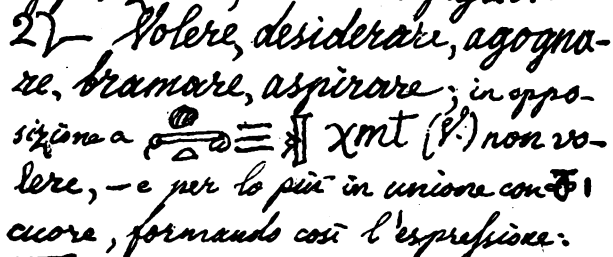 2) — Volere, desiderare, agogna-
re, bramare, aspirare; in oppo-
sizione a 𓐍𓅓𓏏 χmt (V.) non vo-
lere, — e per lo più in unione con 𓄣𓏤
cuore, formando così l'espressione: